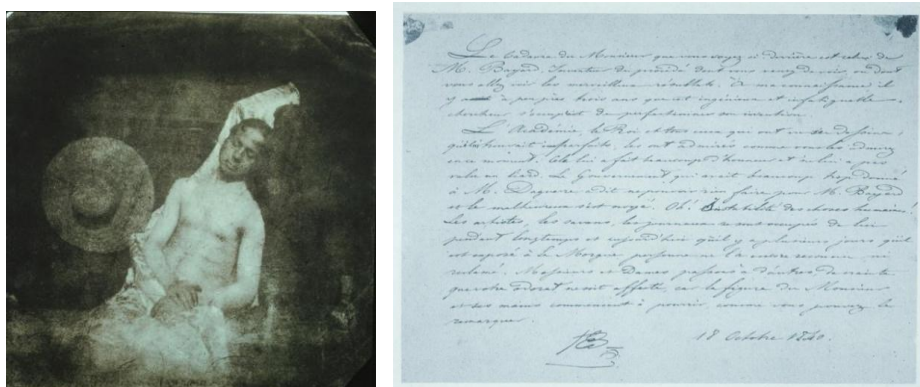 Le cadavre du Monsieur que vous voyez ci derrière est celui de
M. Bayard, inventeur du procédé dont vous venez de voir ou dont
vous allez voir les merveilleux résultats. À ma connaissance il
y a à peu près trois ans que cet ingénieux et infatigable
chercheur s'occupait de perfectionner son invention.
L' Académie, le Roi et tous ceux qui ont vu ses dessins,
trouvait imparfaits, les ont admirés comme vous les admirez
en ce moment. Cela lui a fait beaucoup d'honneur et ne lui a pas
valu un liard. Le Gouvernement, qui avait beaucoup trop donné
à M. Daguerre a dit ne pouvoir rien faire pour M. Bayard
et le malheureux s'est noyé. Oh! Instabilité des choses humaines!
Les artistes, les savans, les journaux se sont occupés de lui
pendant longtemps et aujourd'hui qu'il y a plusieurs jours qu'il
est exposé à la Morgue personne ne l'a encore reconnu ni
réclamé. Messieurs et Dames, passons à d'autres, de crainte
que votre odorat ne soit affecté, car la figure du Monsieur
et ses mains commencent à pourrir, comme vous pouvez le
remarquer.
HB
18 Octobre 1840.